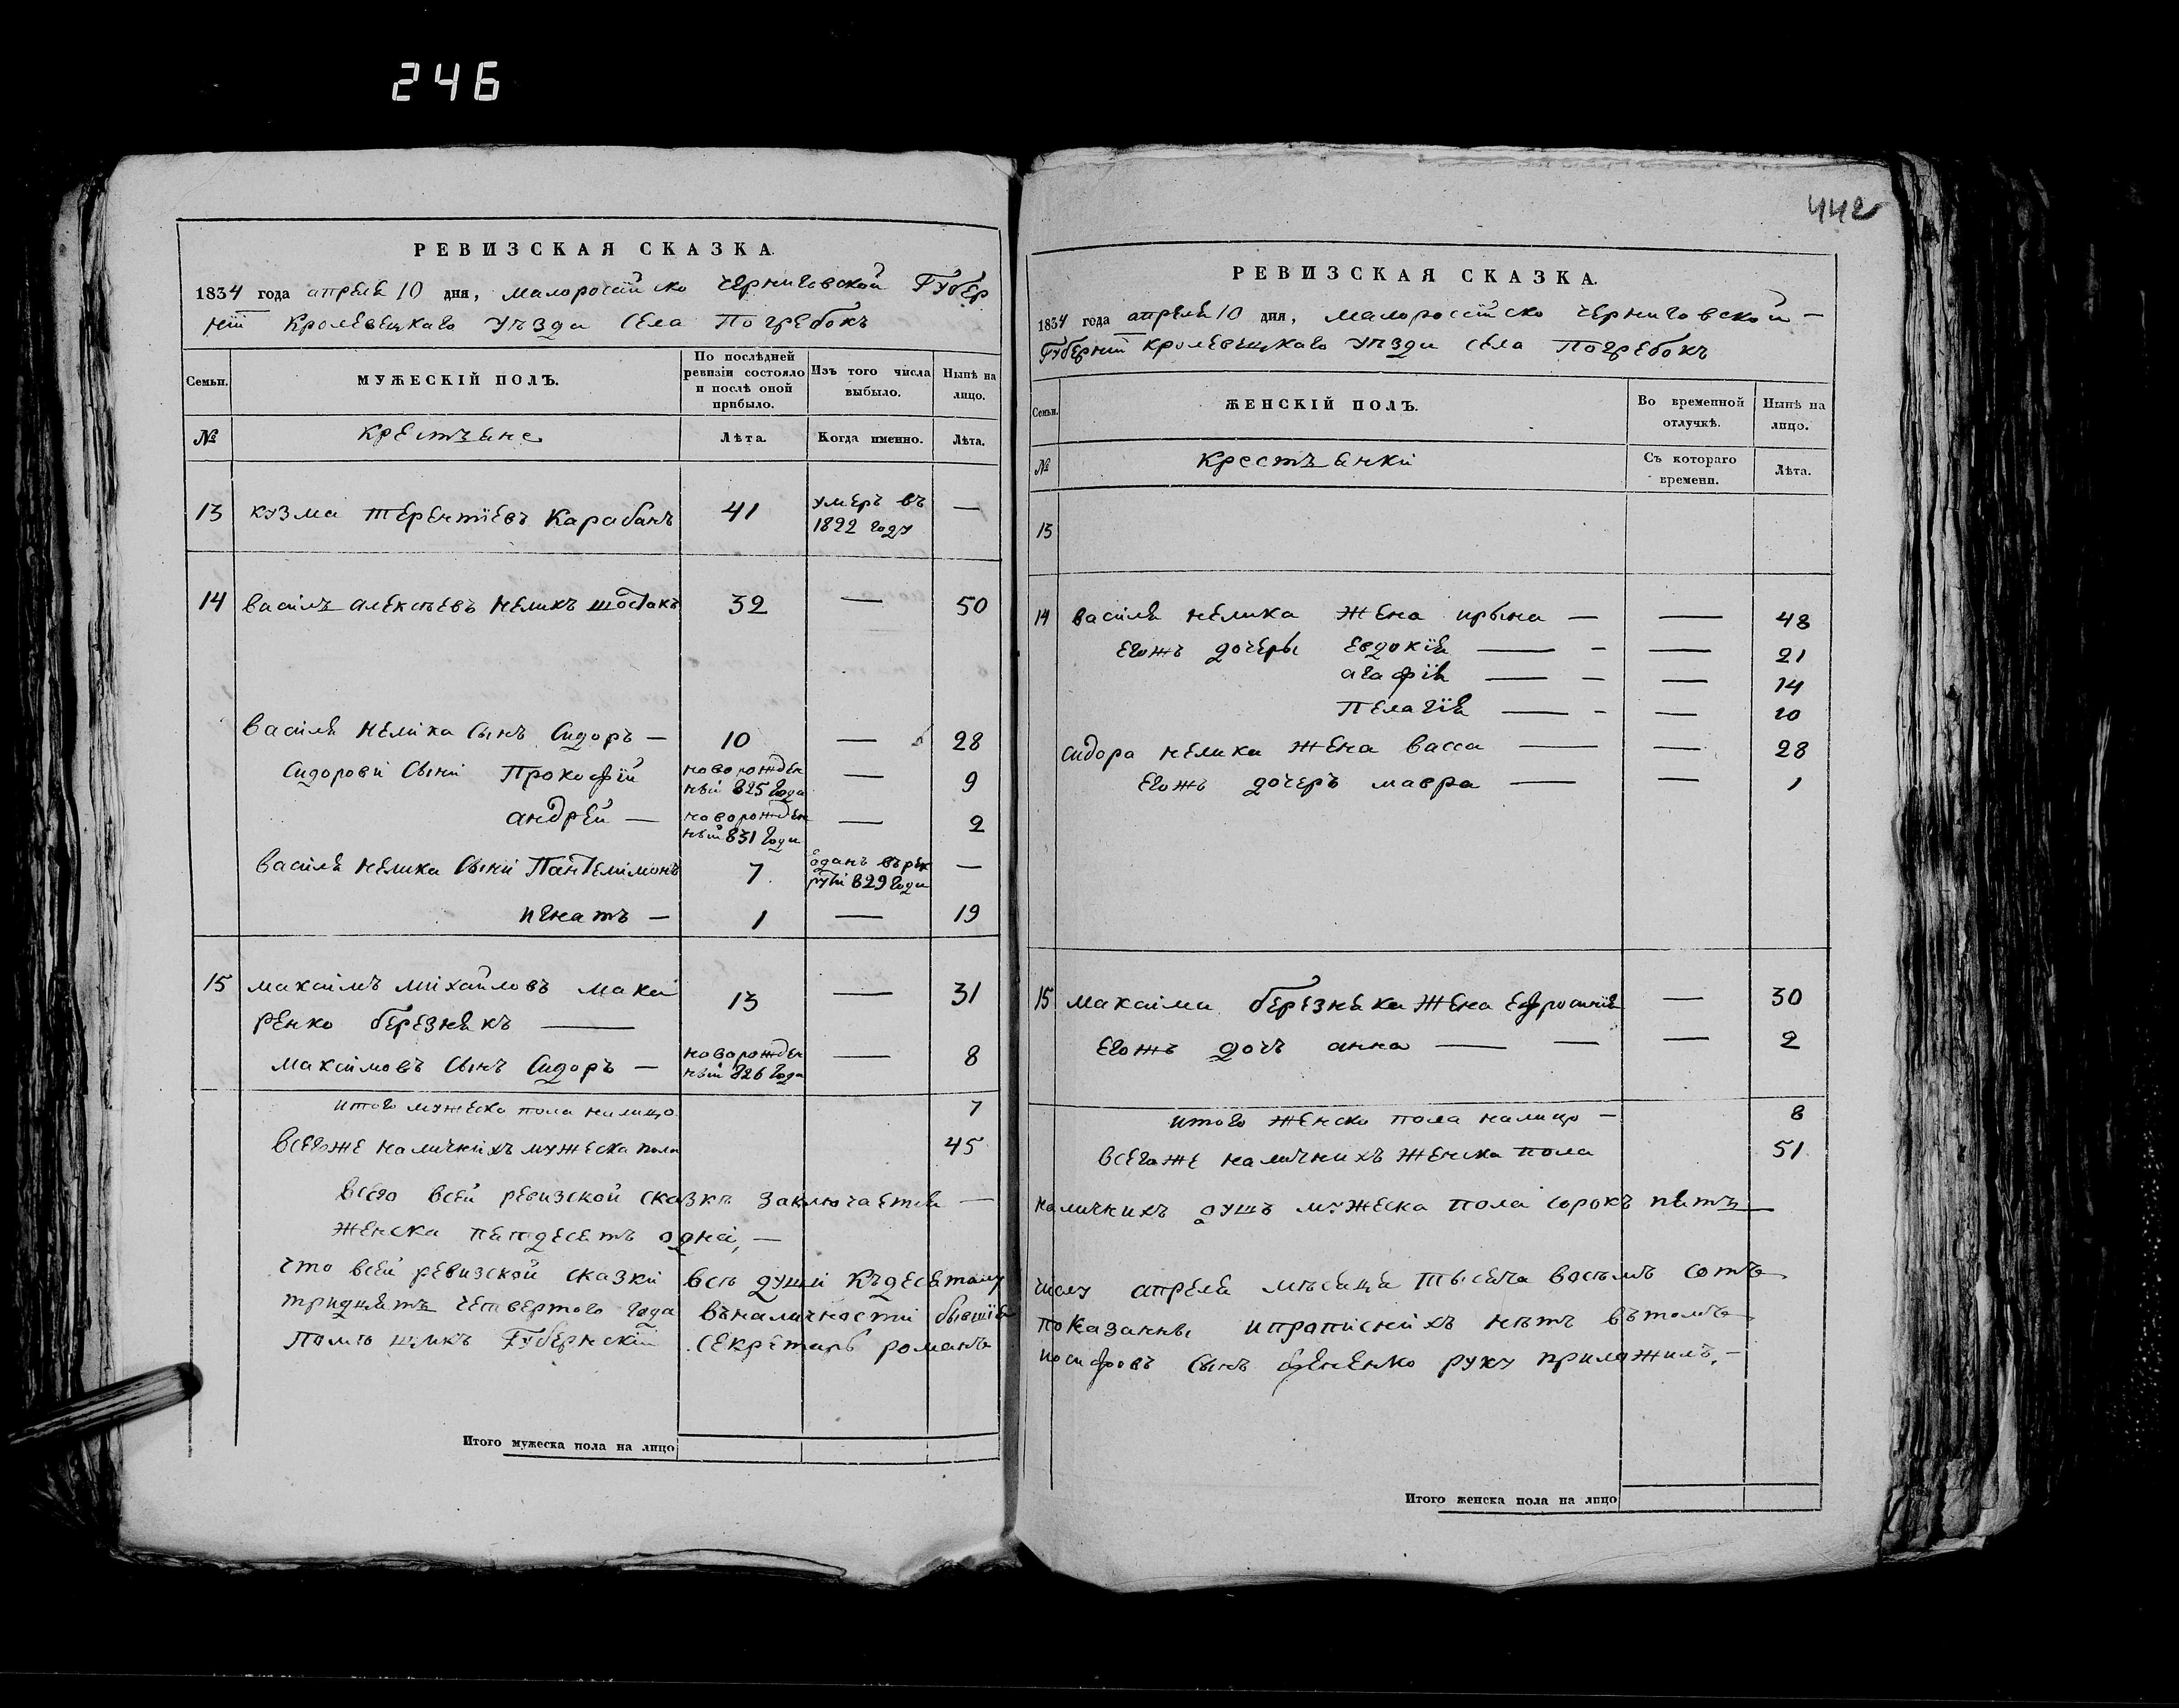 246
442
РЕВИЗСКАЯ СКАЗКА.
1834 года апреля 10 дня, малоросийско черниговской Губер
ніи Кролевецкаго уѣзда села Погребокъ
Семьи. МУЖЕСКІЙ ПОЛЪ. По послѣдней ревизіи состояло и послѣ оной прибыло. Изъ того числа выбыло. Нынѣ на лицо.
№ крестъяне Лѣта. Когда именно. Лѣта.
13 кузма терентіевъ Карабанъ 41 умеръ въ 1822 году —
14 василъ алексѣевъ нѣлика шостакъ 32 — 50
василя нелика сынъ Сидоръ — 10 — 28
Сидоровы Сыни Прокофій новорожденъ ный 825 года — 9
андрей — новорожден ный 831 года — 2
василя нелика сыни Пантелимонъ 7 одань въ рек руты 829 года —
игнатъ — 1 — 19
15 максимъ михайловъ мака
ренко березнякъ — 13 — 31
максимовъ сынъ Сидоръ — новорожден ный 826 года — 8
итого мужеска пола налицо 7
всегоже наличнихъ мужеска пола 45
Всего всей ревизской сказкѣ заключается —
женска пятдесятъ одна, —
что всей ревизской сказки всѣ души къ десятому
тридцять четвертого года въ наличности бывшія
Помѣщикъ Губернскій секретарь романъ
Итого мужеска пола на лицо
РЕВИЗСКАЯ СКАЗКА.
1834 года апреля 10 дня, малоросійско черниговской —
Губерніи кролевецкаго уѣзда села Погребокъ
Семьи. ЖЕНСКІЙ ПОЛЪ. Во временной отлучкѣ. Нынѣ на лицо.
№ крестъянки Съ котораго времени. Лѣта.
13
14 василя нелика жена ирына — — 48
егожъ дочеры евдокія — — 21
агафія — — 14
Пелагія — — 10
сидора нелика жена васса — — 28
егожъ дочеръ мавра — — 1
15 максима березняка жена ефросинія — 30
егожъ дочъ анна — — 2
итого женско пола налицо — 8
всегоже наличнихъ женска пола 51
наличнихъ душъ мужеска пола сорокъ пятъ —
числу апреля мѣсяця тысяча восѣмъ сотъ
показанны и прописнихъ нѣтъ въ томъ
иосифовъ сынъ руку приложилъ, —
Итого женска пола на лицо